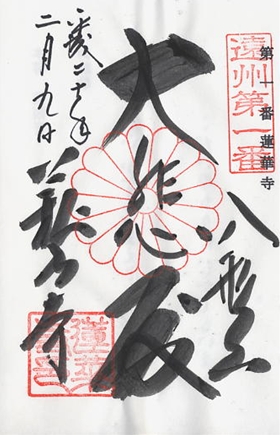 遠州第一番
第一番蓮華寺
八形山
大悲殿
萩の寺
平成二十年
二月九日